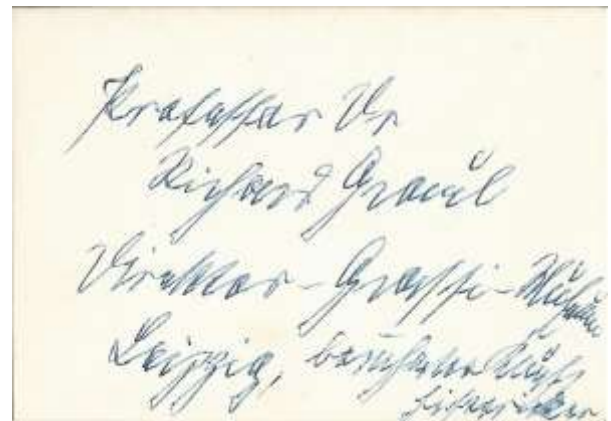 Professor Dr
Richard Graul
Direktor-Grassi-Museum
Leipzig, berühmter Kunst
historiker